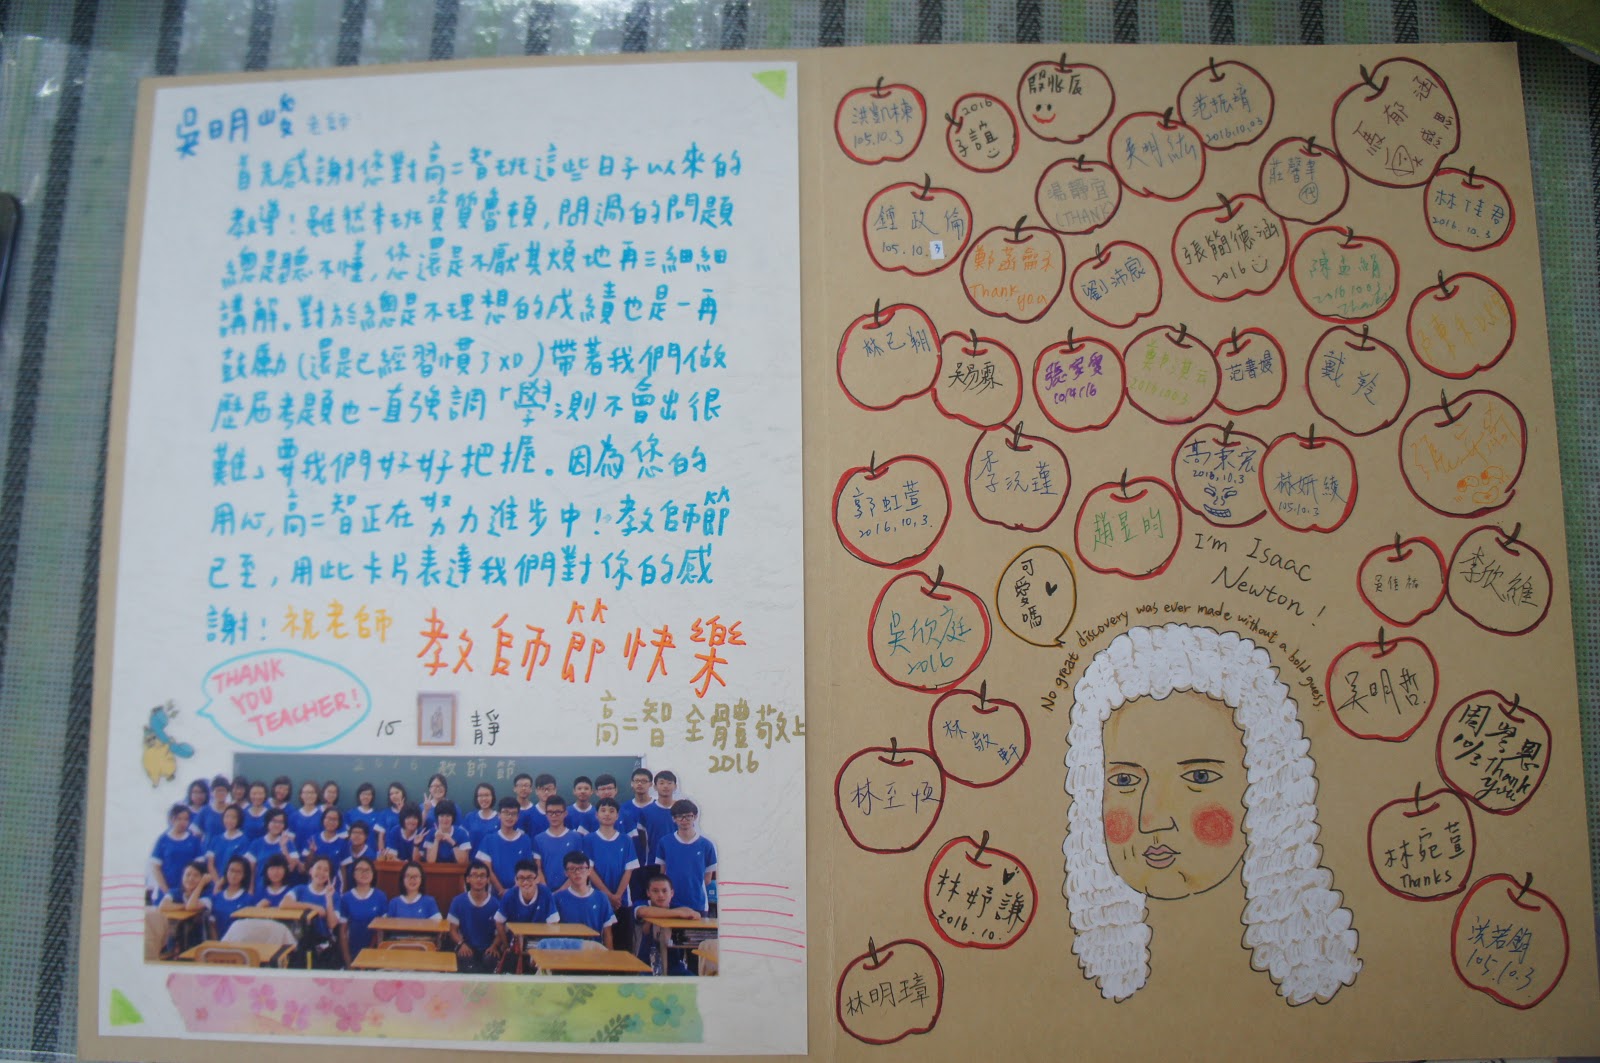 吳明峻 老師
首先感謝您對高二智班這些日子以來的
教導！雖然本班資質魯頓，問過的問題
總是聽不懂，您還是不厭其煩地再三細細
講解。對於總是不理想的成績也是一再
鼓勵（還是已經習慣了XD）帶著我們做
歷屆考題也一直強調「學測不會出很
難」要我們好好把握。因為您的
用心，高二智正在努力進步中！教師節
已至，用此卡片表達我們對你的感
謝！祝老師
教師節快樂
THANK
YOU
TEACHER!
靜
高二智全體敬上
2016
2016 教師節
洪凱棟
105.10.3
2016
子誼
殷兆辰
范振晴
2016.10.03
郁涵
感恩
吳明紘
莊馨聿
湯靜宜
(THANK)
林佳君
2016.10.3
鍾政倫
105.10.3
張簡德涵
2016
Thank
you
劉沛宸
2016.10.03
林己翔
吳易霖
張家愛
2016.10.03
范書嫚
戴羚
郭虹萱
2016.10.3
李沅瑾
高秉宏
2016.10.3
林妍綾
105.10.3
趙昱昀
I'm Isaac
Newton!
可愛嗎
No great discovery was ever made without a bold guess
李欣維
吳欣庭
2016
吳明哲
林敬軒
周雩恩
10/3
Thank
you
林至恆
林宛萱
Thanks
林妤謙
2016.10.
洪若鈞
105.10.3
林明璋